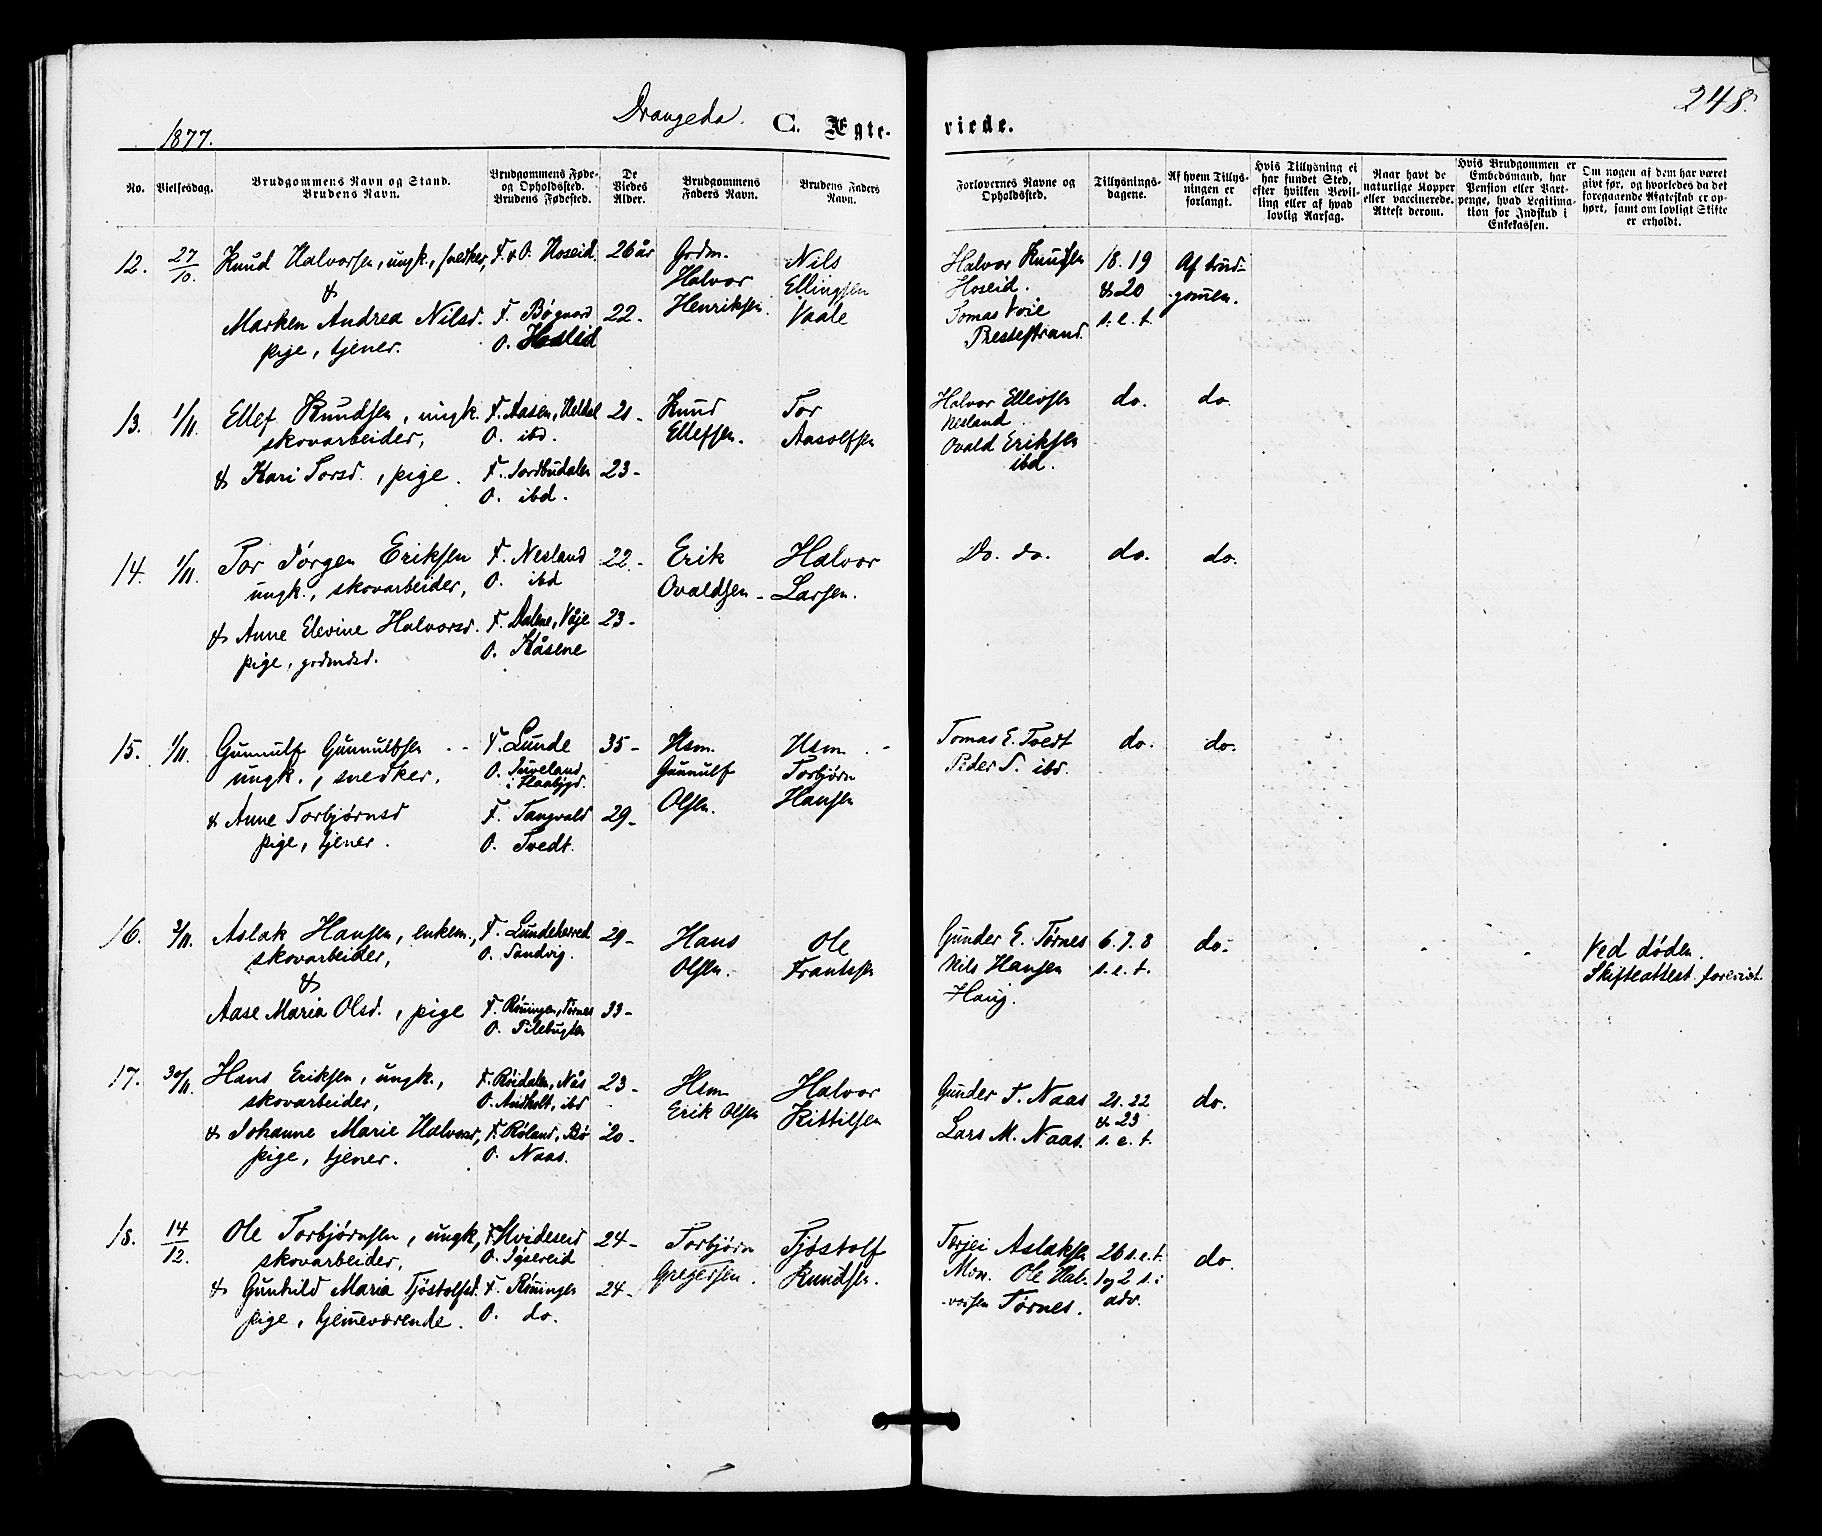 Drangedal.
C. Ægte-
viede.
248.
1877.
No.
Vielsesdag.
Brudgommens Navn og Stand.
Brudens Navn.
Brudgommens Føde-
og Opholdssted.
Brudens Fødested.
De
Viedes
Alder.
Brudgommens
Faders Navn.
Brudens Faders
Navn.
Forlovernes Navne og
Opholdssted.
Tillysnings-
dagene.
Af hvem Tillys-
ningen er
forlangt.
Hvis Tillysning ei
har fundet Sted,
efter hvilken Bevil-
ling eller af hvad
lovlig Aarsag.
Naar havt de
naturlige Kopper
eller vaccinerede.
Attest derom.
Hvis Brudgommen er
Embedsmand, har
Pension eller Vart-
penge, hvad Legitima-
tion for Indskud i
Enkekassen.
Om nogen af dem har været
givt før, og hvorledes da det
foregaaende Ægteskab er op-
hørt, samt om lovligt Skifte
er erholdt.
12. 27/10. Knud Halvorsen, ungk., snedker, F. & O. Hoseid. 26 år Grdm. Halvor Henriksen. Nils Ellingsen Vaale
&
Marken Andrea Nilsd. F. Bøgaard 22.
pige, tjener. O. Hoseid
Halvor Knudsen Hoseid.
Tomas Voie Prestestrand.
18. 19 & 20 s. e. t.
Af brud-
gomen.
13. 1/11. Ellef Knudsen, ungk. F. Aasen, 21 - Knud Ellefsen. Tor Aasolfsen
skovarbeider, O. ibd.
& Kari Torsd., pige. F. Tordbudalen 23 -
O. ibd.
Halvor Ellevsen
Nesland.
Ovald Eriksen
ibd.
do. do.
14. 1/11. Tor Jørgen Eriksen F. Nesland 22. - Erik Ovaldsen - Halvor Larsen.
ungk., skovarbeider, O. ibd
& Anne Elevine Halvorsd. F. Dalene, Våje 23 -
pige, grdmdsd. O. Kåsene
Do. do. do. do.
15. 1/11. Gunnulf Gunnulfsen - - F. Lunde 35 - Hsm. Gunnulf Olsen. Hsm. Torbjørn Hansen
ungk., snedker. O. Tuveland
& Anne Torbjørnsd F. Tangvald 29 -
pige, tjener. O. Tvedt.
Tomas E. Tvedt
Peder S. ibd.
do. do.
16. 3/11. Aslak Hansen, enkem., F. Lundeherred 29 - Hans Olsen. Ole Frantssen
skovarbeider, O. Sandvig.
&
Aase Maria Olsd., pige F. Røningen, Tørnes 33 -
O. Pilebugten
Gunder E. Tørnes
Nils Hansen
Haug.
6. 7. 8
s. e. t.
do.
Ved døden.
Skifteattest forevist.
17. 30/11. Hans Eriksen, ungk., F. Røidalen, Nås 23 - Hsm Erik Olsen Halvor Kittilsen
skovarbeider, O. Andholt, ibd
& Johanne Marie Halvorsd, F. Røland, Bø 20 -
pige, tjener. O. Naas.
Gunder T. Naas
Lars M. Naas.
21. 22
& 23
s. e. t.
do.
18. 14/12. Ole Torbjørnsen, ungk, F. Hvideseid 24 - Torbjørn Gregersen. Tjøstolf Knudsen.
skovarbeider, O.
& Gunhild Maria Tjøstolfsd. F. Røningen 24 -
pige, hjemeværende. O. do.
Terjei Aslaksen
Moen. Ole Hal-
vorsen Tørnes.
26 s. e. t.
1 og 2 s. i
adv.
do.